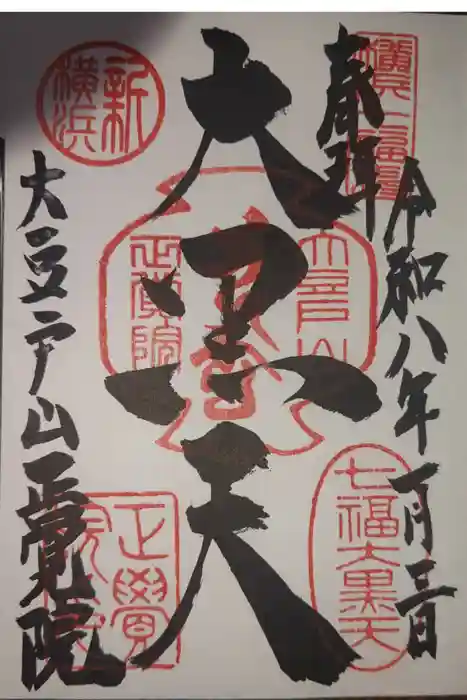 奉拝
令和八年一月三日
大黒天
大豆戸山正覚院
新横浜
大豆戸山
正覚院
七福大黒天
正覺